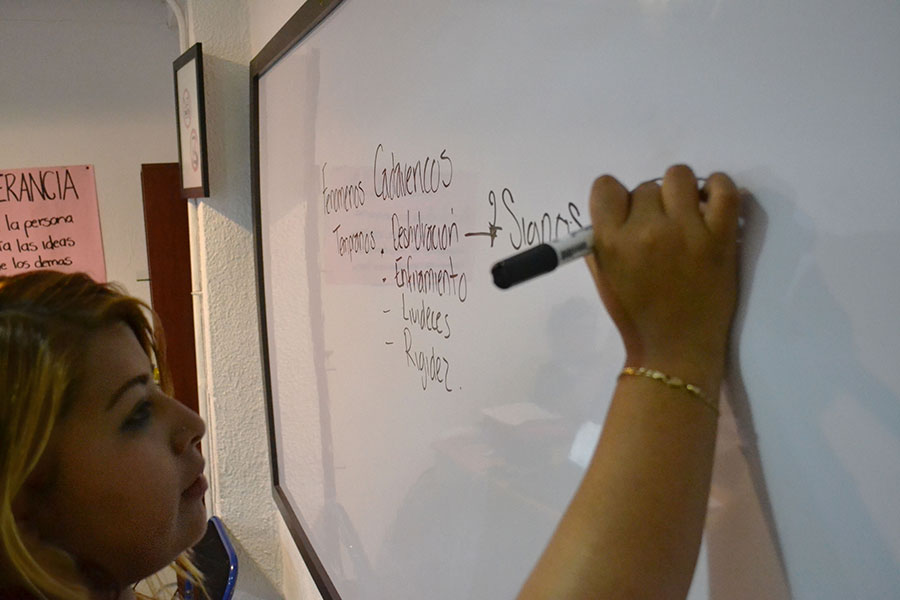 ERANCIA
la persona
ía las ideas
e los demas
Fenómenos Cadavéricos
Tempranos. Deshidración → 2 Signos
• Enfriamiento
- Livideces
- Rigidez.